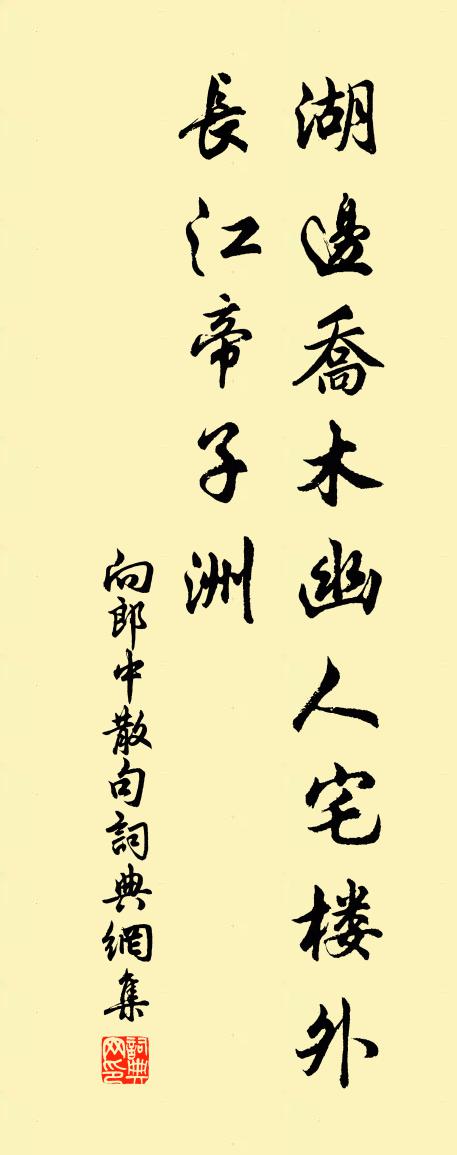 湖邊喬木幽人宅楼外
長江帝子洲
向郎中散句詞典網集
詞典网印